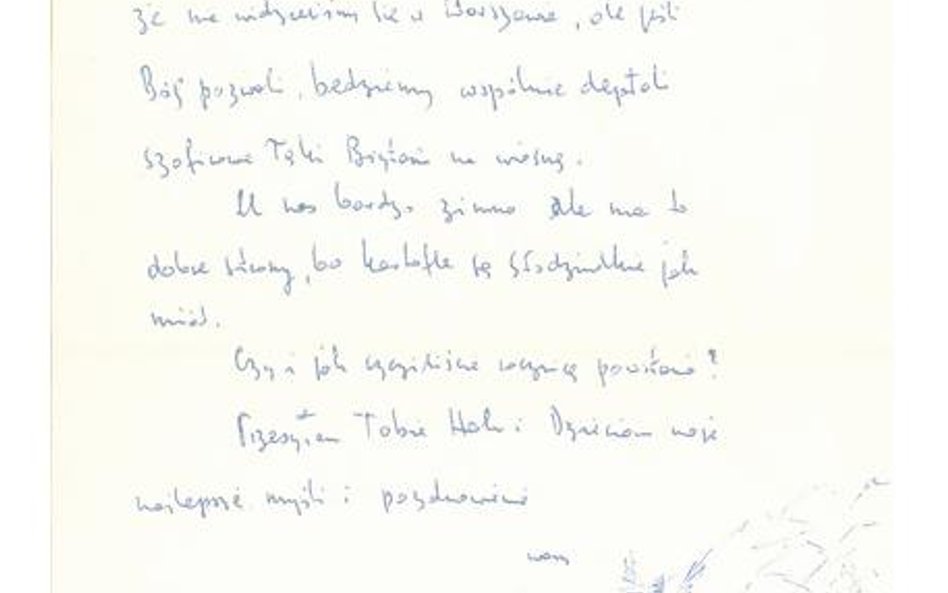 że nie widzieliśmy się w Warszawie, ale jeśli
Bóg pozwoli, będziemy wspólnie deptali
szafirowe Łąki na wiosnę.
U nas bardzo zimno Ale ma to
dobre strony, bo kartofle są słodziutkie jak
miód.
Czy i jak uczciliście rocznicę powstania?
Przesyłam Tobie Halu i Dzieciom moje
najlepsze myśli i pozdrowienia